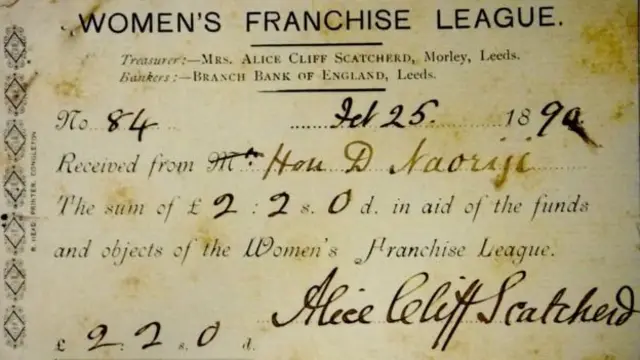 WOMEN'S FRANCHISE LEAGUE.
Treasurer:—MRS. ALICE CLIFF SCATCHERD, Morley, Leeds.
Bankers:—BRANCH BANK OF ENGLAND, Leeds.
No. 84 Feb 25. 1890
Received from M Hon D Naoriji
The sum of £ 2 : 2 s. 0 d. in aid of the funds
and objects of the Women's Franchise League.
Alice Cliff Scatcherd
£ 2 : 2 s. 0 d.
R. HEAD, PRINTER, CONGLETON